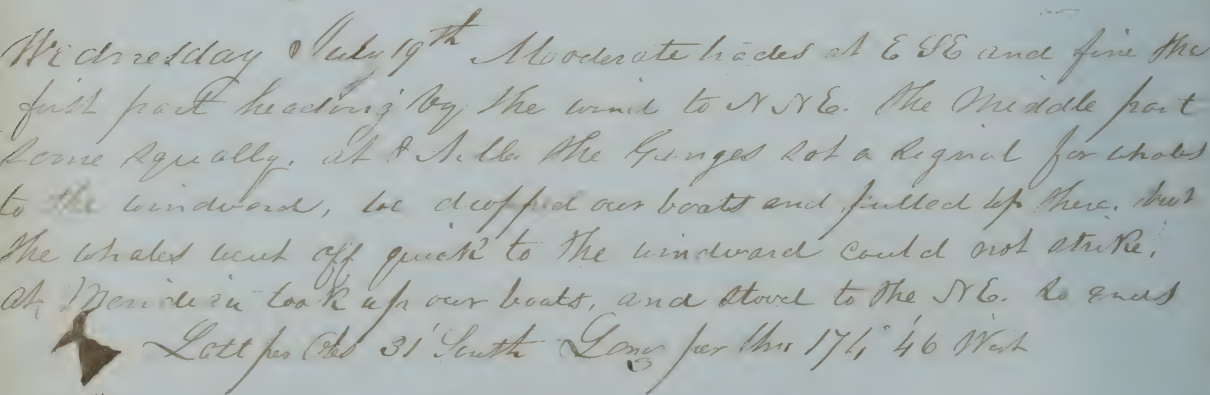 Wednesday July 19th Moderate trades at E SE and fine the
first part heading by the wind to N NE. the Middle part
some squally. at 8 A.M. the Ganges sot a signal for whales
to the windward, we dropped our boats and pulled up there. but
the whales went off quick to the windward could not strike.
at Meridian took up our boats, and stood to the NE. So ends
Latt per Obs 31' South Long per Chr 174° 46 West